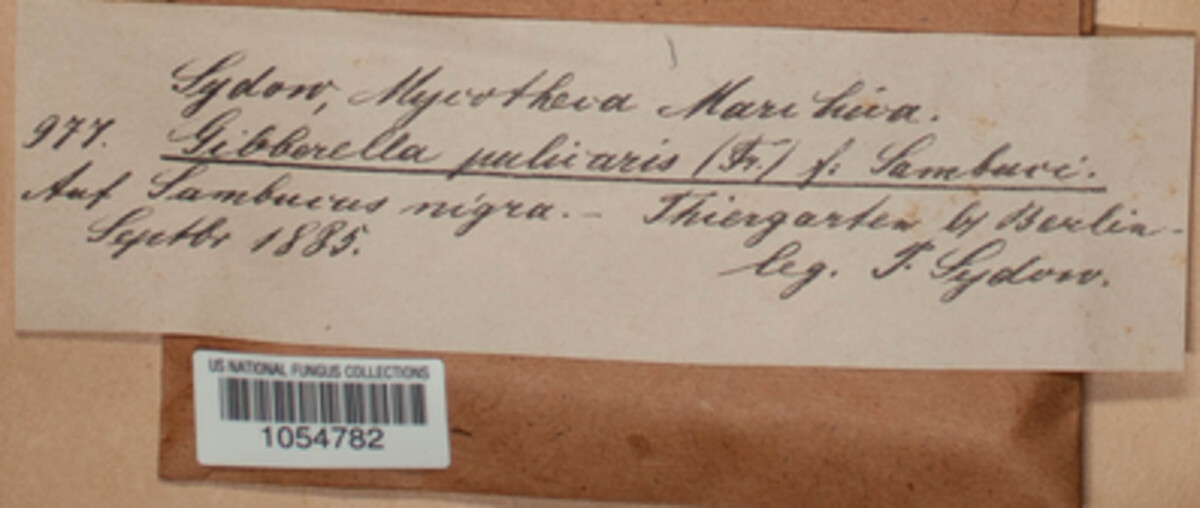 Sydow, Mycotheca Marchica.
977. Gibberella pulicaris (Fr.) f: Sambuci.
Auf Sambucus nigra. – Thiergarten b/ Berlin.
Septbr 1885.
leg. P. Sydow.
US NATIONAL FUNGUS COLLECTIONS
1054782